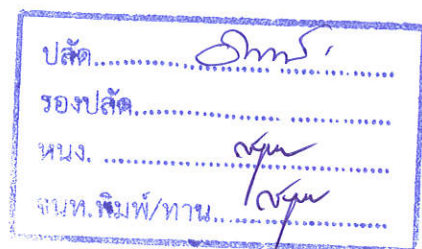 ปลัด....................
รองปลัด....................
หนง. ....................
จนท.พิมพ์/ทาน....................